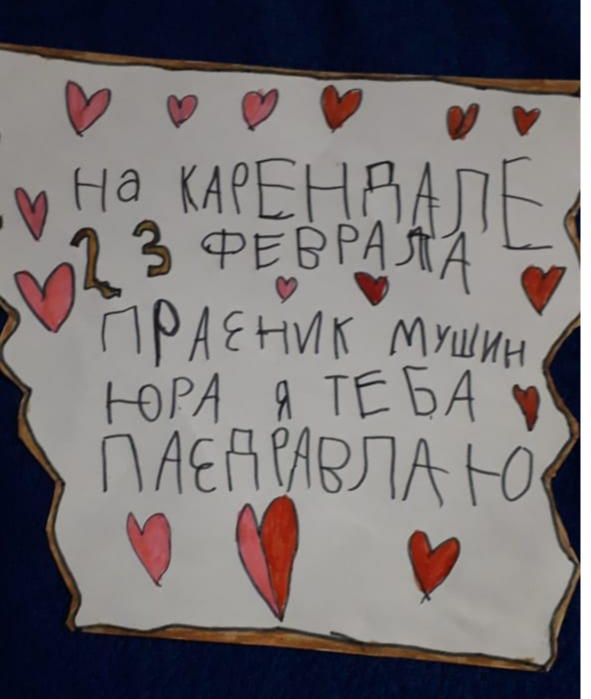 На КАРЕНДАЛЕ
23 ФЕВРАЛА
ПРАЗНИК МУШИН
ЮРА Я ТЕБА
ПАЗДРАВЛАЮ